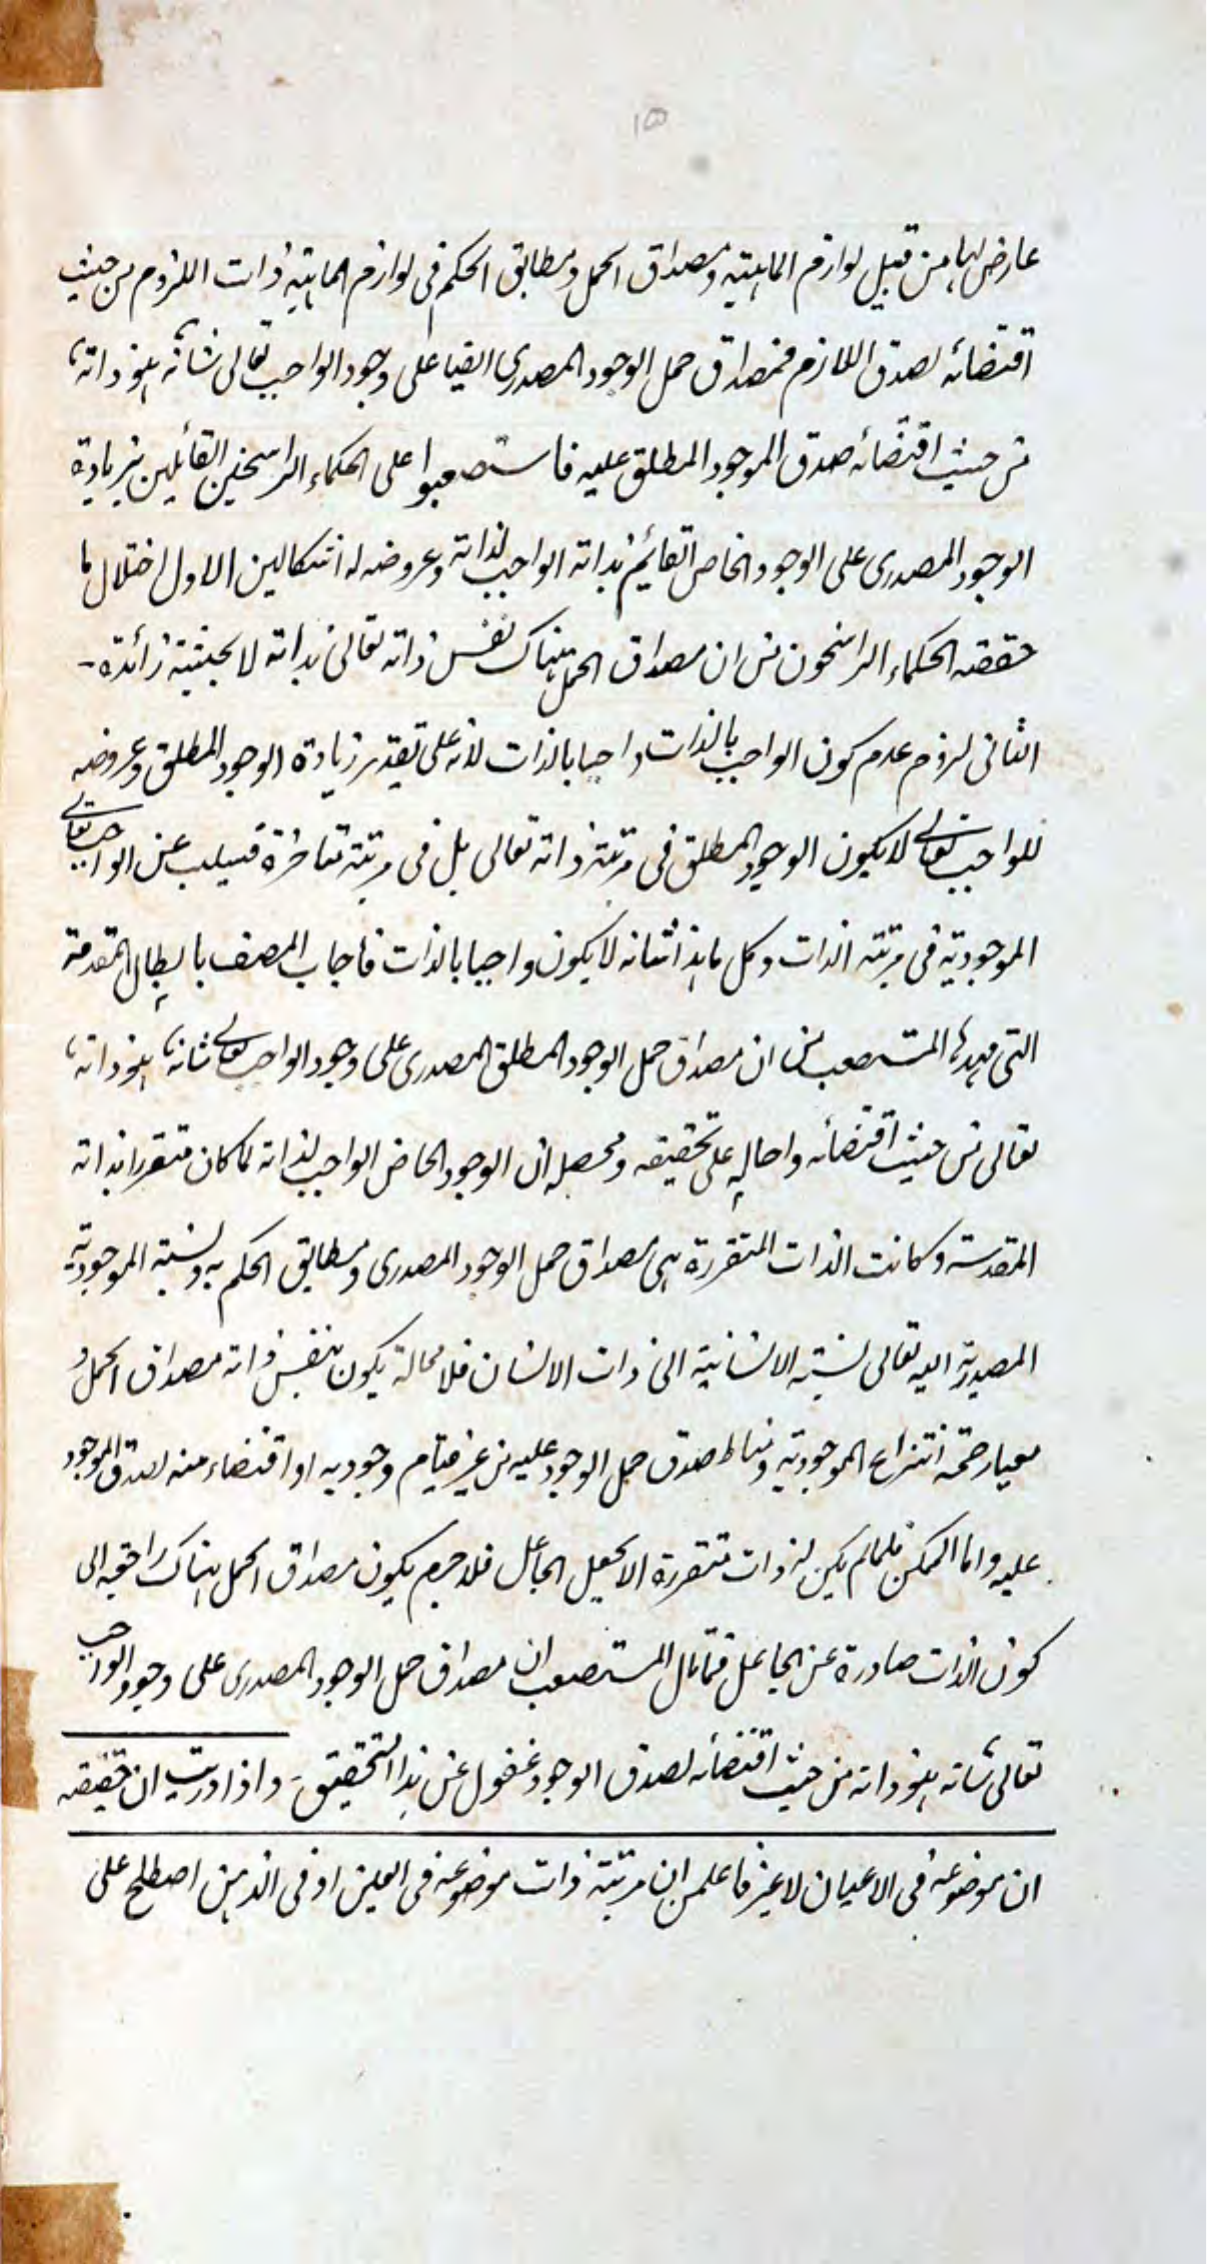 عارض لها من قبيل لوازم الماهيته ومصداق الحمل ومطابق الحكم فى لوازم الماهيته ذات الملزوم من حيث
اقتضائه لصدق اللازم فمصداق حمل الوجود المصدرى ايضا على وجود الواجب تعالى شانه هو ذاته
من حيث اقتضائه صدق الموجود المطلق عليه فاستصعبوا على الحكماء الراسخين القائلين بزيادة
الوجود المصدرى على الوجود الخاص القائم بذاته الواجب لذاته وعروضه له اشكالين الاول اختلال ما
حققه الحكماء الراسخون من ان مصداق الحمل هناك نفس ذاته تعالى بذاته لا بحيثية زائدة
الثانى لزوم عدم كون الواجب بالذات واجبا بالذات لانه على تقدير زيادة الوجود المطلق وعروضه
للواجب تعالى لا يكون الوجود المطلق فى مرتبته ذاته تعالى بل فى مرتبته متاخرة فيسلب عن الواجب تعالى
الموجودية فى مرتبته الذات وكل ما هذا شانه لا يكون واجبا بالذات فاجاب المصنف بابطال المقدمة
التى مهدها المستصعب من ان مصداق حمل الوجود المطلق المصدرى على وجود الواجب تعالى شانه هو ذاته
تعالى من حيث اقتضائه واحاله على تحقيقه ومحصله ان الوجود الخاص الواجب لذاته لما كان متقررا بذاته
المقدسة وكانت الذات المتقررة هى مصداق حمل الوجود المصدرى ومطابق الحكم به ونسبة الموجودية
المصدرية اليه تعالى نسبته الانسانية الى ذات الانسان فلا محالة يكون بنفس ذاته مصداق الحمل و
معيار صحة انتزاع الموجودية ومناط صدق حمل الوجود عليه من غير قيام وجود به او اقتضاء منه لصدق الموجود
عليه واما الممكن فلما لم يكن له ذات متقررة الا بجعل الجاعل فلا جرم يكون مصداق الحمل هناك راجعه الى
كون الذات صادرة عن الجاعل فما قال المستصعب ان مصداق حمل الوجود المصدرى على وجود الواجب
تعالى شانه هو ذاته من حيث اقتضائه لصدق الوجود غفول عن هذا التحقيق واذا دريت ان حقيقه
ان موضوعه فى الاعيان لا غير فاعلمن ان مرتبته ذات موضوعه فى العين او فى الذهن اصطلح على